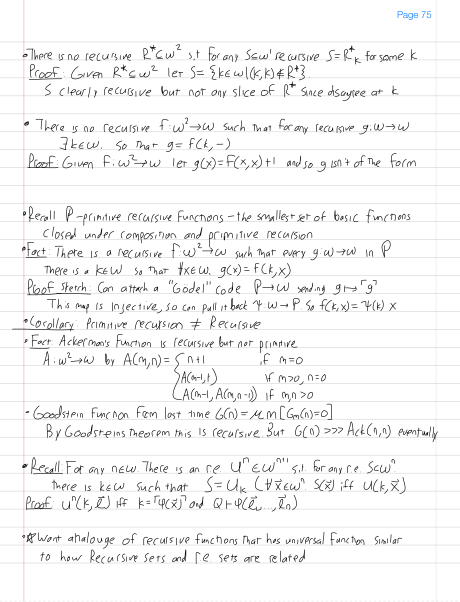 Page 75
• There is no recursive R* ⊆ ω² s.t for any S⊆ω' recursive S=R*ₖ for some k
Proof: Given R*⊆ω² let S= {k∈ω|(k,k)∉R*}.
S clearly recursive but not any slice of R* since disagree at k
• There is no recursive f:ω²→ω such that for any recursive g:ω→ω
∃k∈ω. so that g= f(k,-)
Proof: Given F:ω²→ω let g(x)=F(x,x)+1 and so g isn't of the form
• Recall P-primitive recursive functions - the smallest set of basic functions
closed under composition and primitive recursion
• Fact: There is a recursive f:ω²→ω such that every g:ω→ω in P
There is a k∈ω so that ∀x∈ω, g(x)=f(k,x)
Proof sketch: Can attach a "Gödel" code P→ω sending g↦⌜g⌝
This map is Injective, so can pull it back Ψ:ω→P. So f(k,x)=Ψ(k) x
• Corollary: Primitive recursion ≠ Recursive
• Fact: Ackerman's Function is recursive but not primitive
A:ω²→ω by A(m,n)= { n+1 if m=0
A(m-1,1) if m>0, n=0
A(m-1, A(m,n-1)) if m,n>0
- Goodstein Function From last time G(n)=μm[Gₘ(n)=0]
By Goodsteins Theorem this is recursive. But G(n) >>> Ack(n,n) eventually
• Recall: For any n∈ω. There is an r.e. Uⁿ∈ωⁿ⁺¹ s.t. for any r.e. S⊂ωⁿ
there is k∈ω such that S=Uₖ (∀x⃗∈ωⁿ S(x⃗) iff U(k,x⃗)
Proof: Uⁿ(k,l⃗) iff k=⌜φ(x⃗)⌝ and Q⊢φ(l⃗₁,...,l⃗ₙ)
• Want analouge of recursive functions that has universal function similar
to how Recursive sets and r.e. sets are related